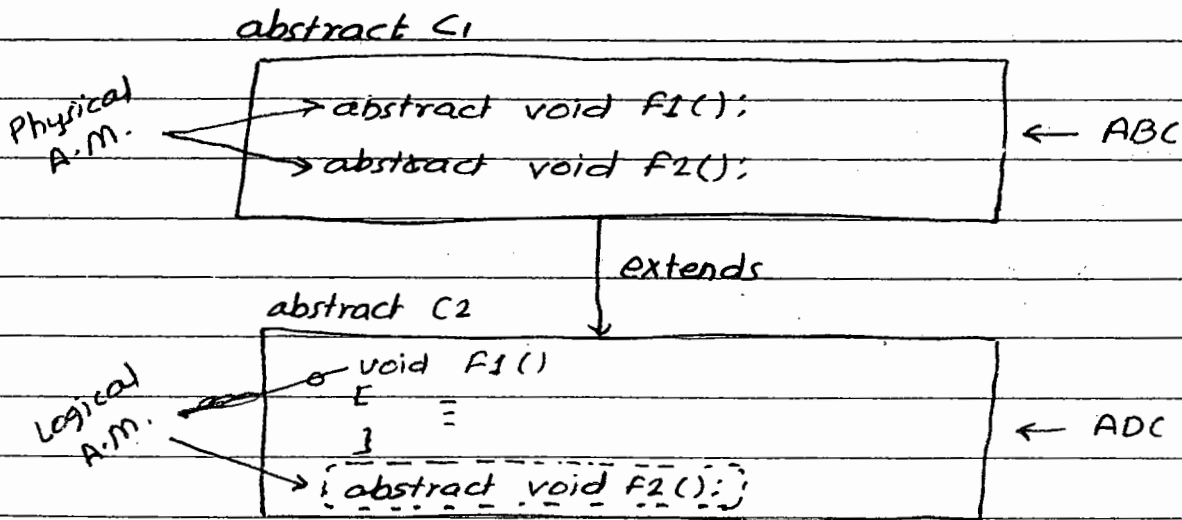 abstract C1
Physical A.M.
abstract void F1();
abstract void F2();
← ABC
extends
abstract C2
Logical A.M.
void F1()
[
]
← ADC
abstract void F2();